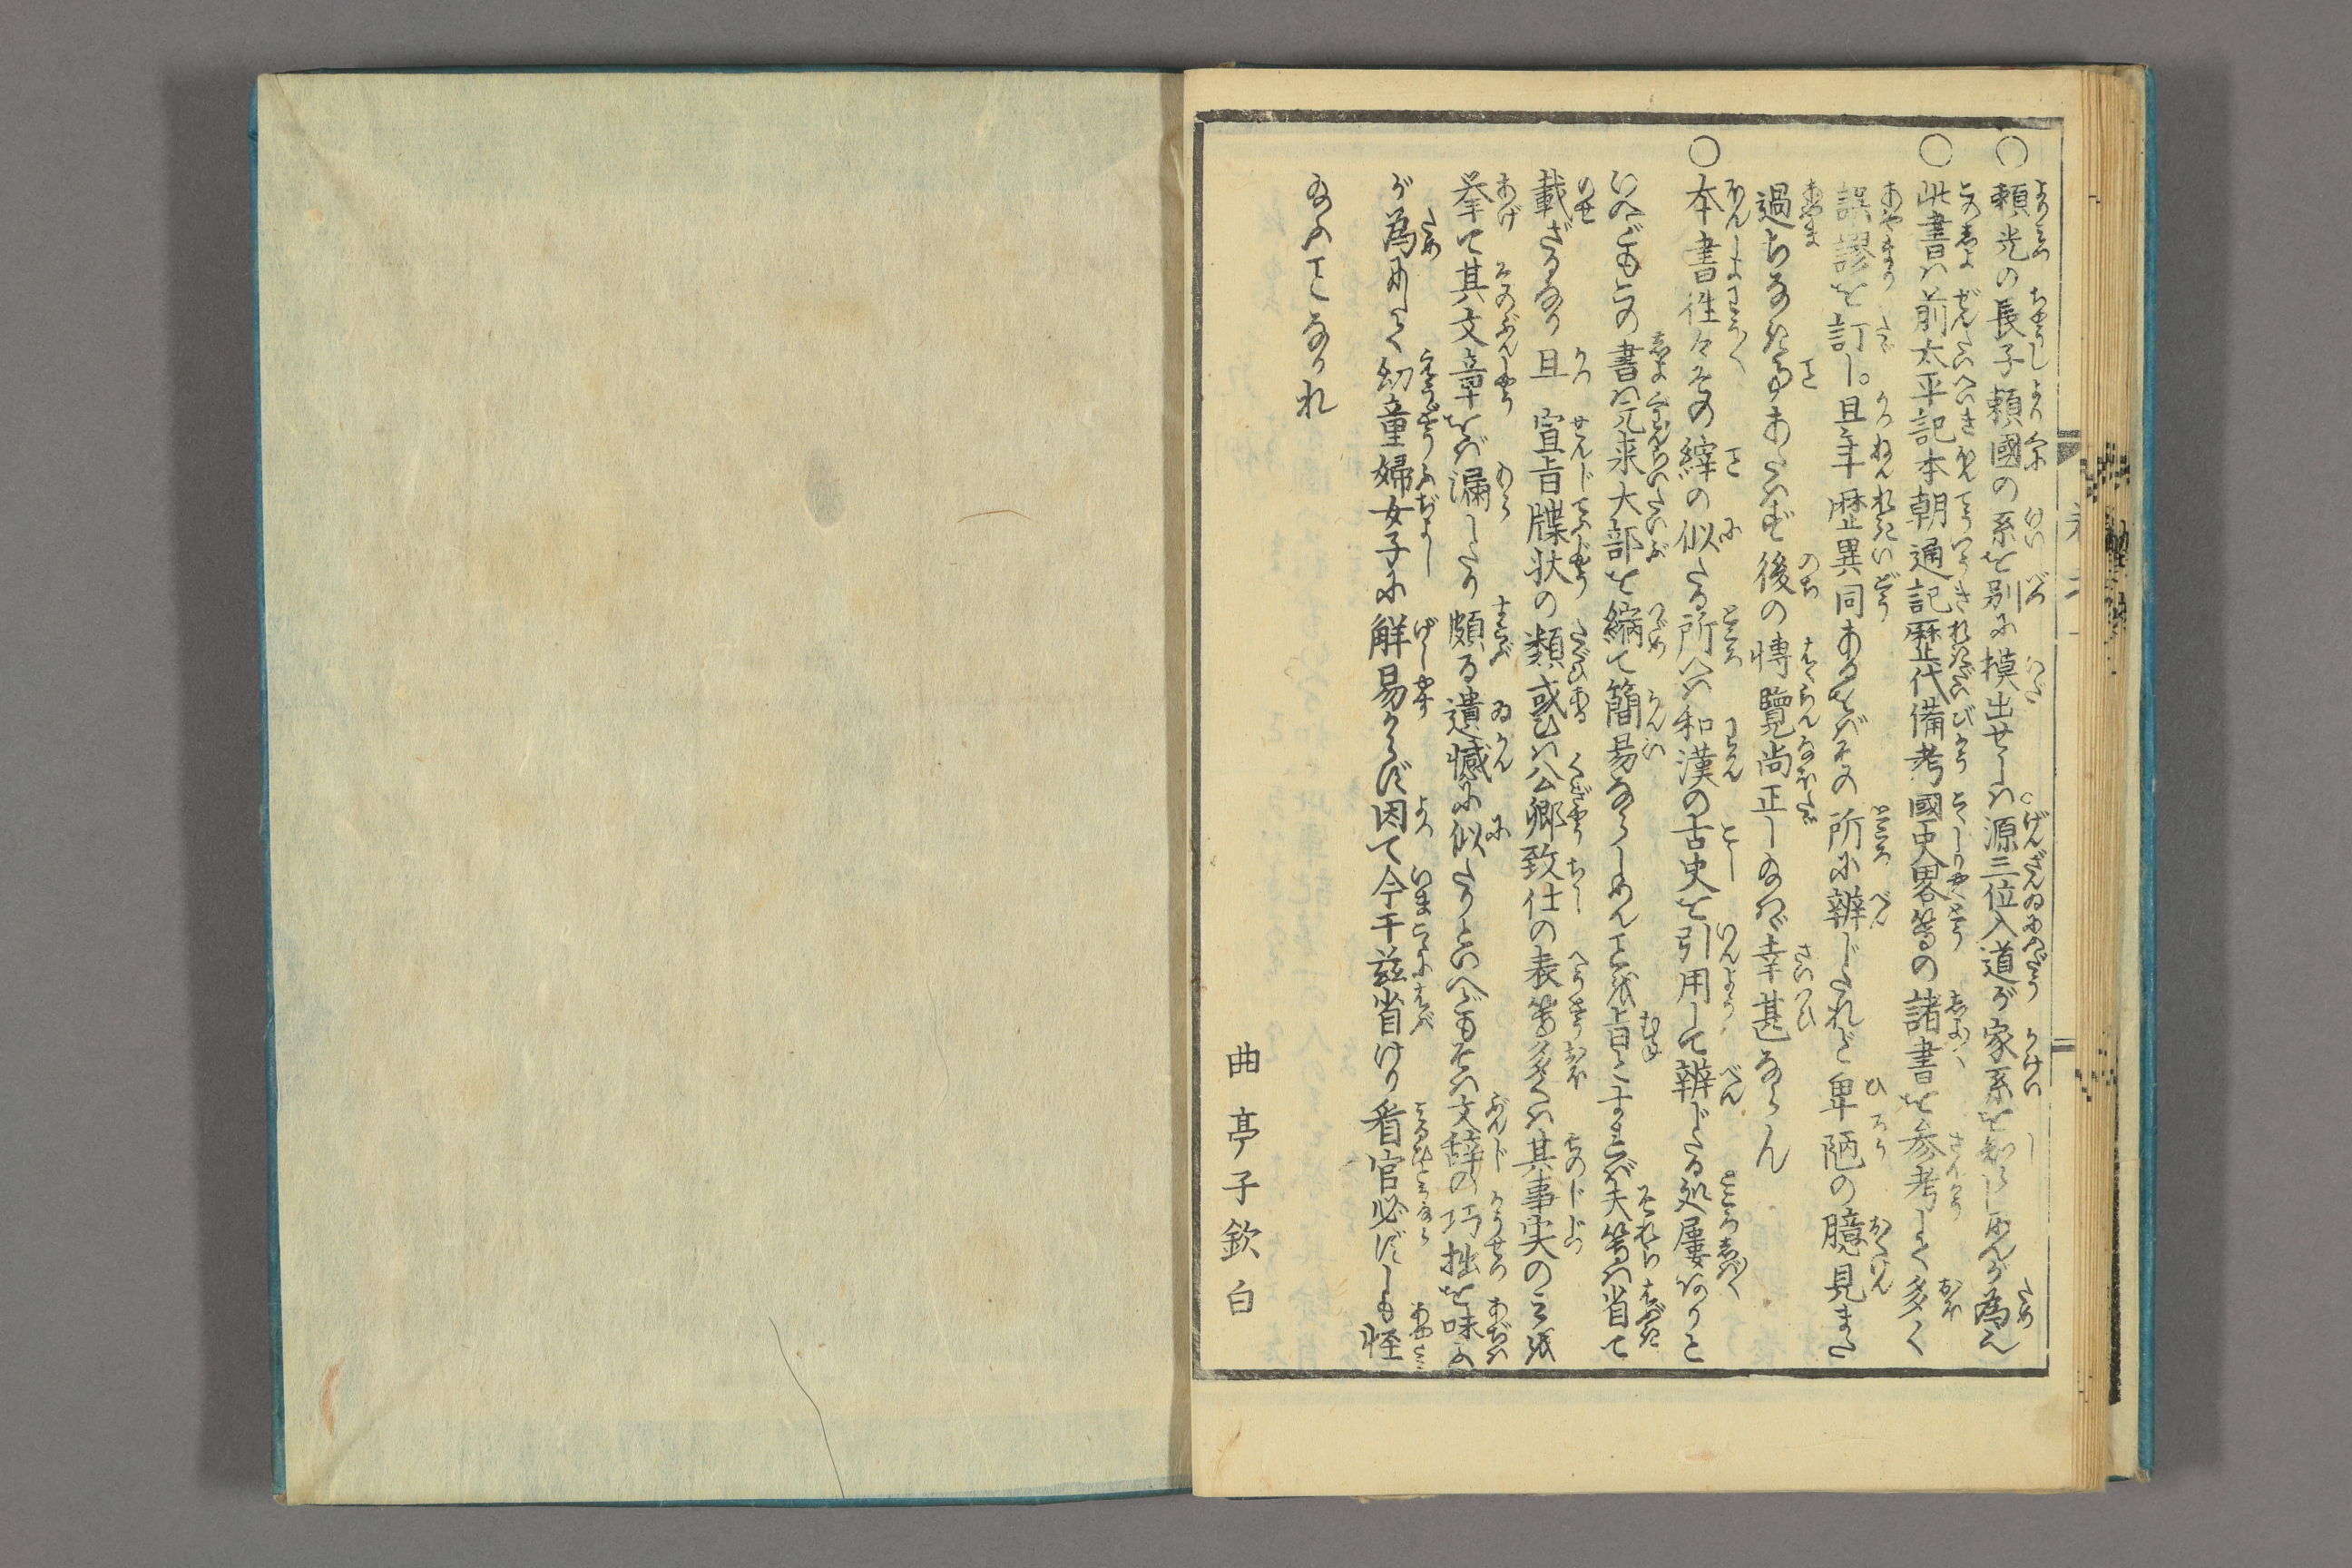 ○頼光の長子頼國の系を別に摸出せしは源三位入道が家系を知らしめんが為也
○此書は前太平記本朝通記歴代備考國史畧等の諸書を参考して多く
誤謬を訂し。且年歴異同あるをばその所に辨じたれど卑陋の臆見また
過ちなき事あたはず後の博覽尚正し給はゞ幸甚ならん
○本書徃々その縡の似たる所へは和漢の古史を引用して辨じたる処屢ありと
いへどもこの書は元来大部を縮て簡易ならしめんことを旨とすれば夫等は省て
載ざるなり且宣旨牒状の類或ひは公卿致仕の表等多くは其事実のみを
挙て其文章をば漏したり頗る遺憾に似たりといへどもそは文辞の巧拙を味ふ
が為にして幼童婦女子に解易からず因て今于茲省けり看官必ずしも怪
給ふことなかれ
曲亭子欽白